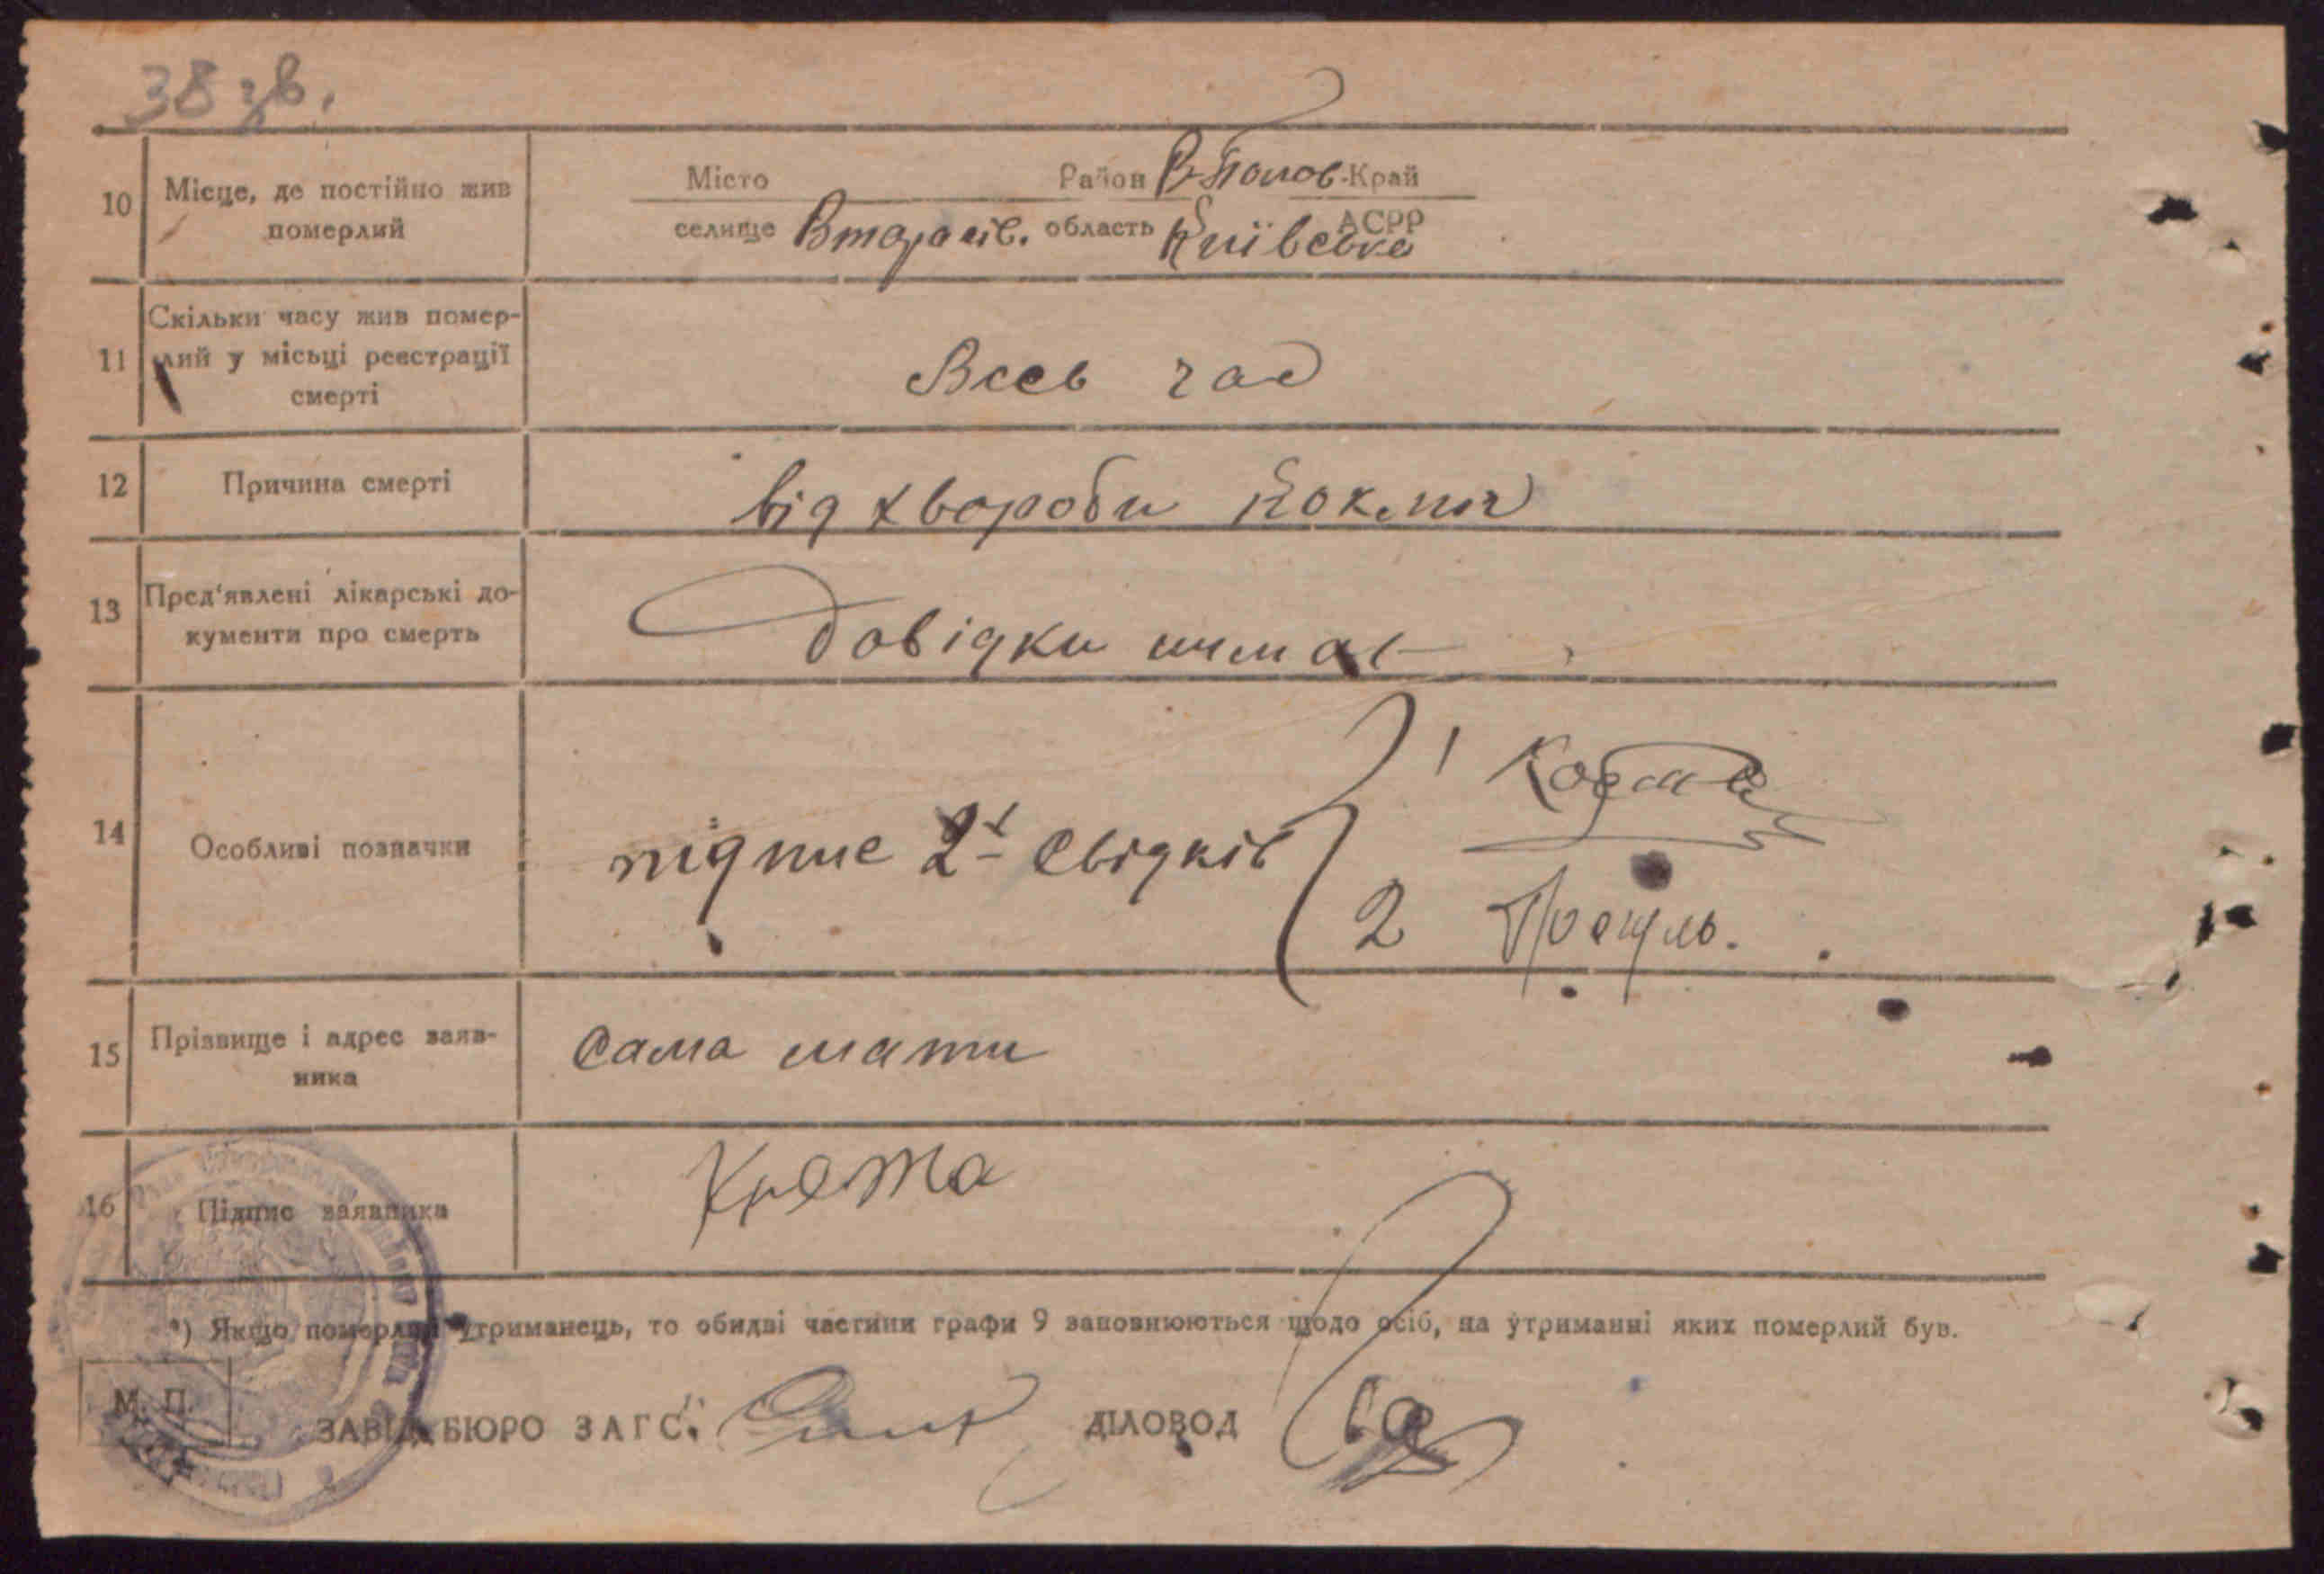 38 зв.
10 Місце, де постійно жив померлий
Місто Район В-Полов- Край
селище Втарасів. область Київська АСРР
11 Скільки часу жив помер-
лий у місьці реєстрації
смерті
Весь час
12 Причина смерті
від хвороби
13 Пред'явлені лікарські до-
кументи про смерть
Довідки нимає
14 Особливі позначки
підпис 2х свідків
1
2
15 Прізвище і адрес заяв-
ника
сама мати
16 Підпис заявника
*) Якщо померлий утриманець, то обидві частини графи 9 заповнюються щодо осіб, на утриманні яких померлий був.
М. П.
ЗАВІД. БЮРО ЗАГС:
ДІЛОВОД